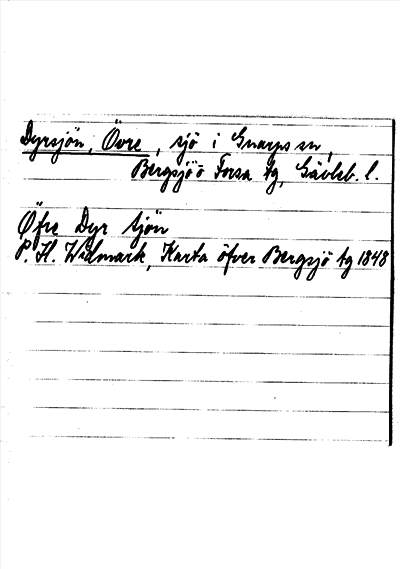 Dyrsjön, Övre, sjö i Gnarps sn,
Bergsjö o Forsa tg, Gävleb. l.
Öfre Dyr sjön
P. H. Widmark, Karta öfver Bergsjö tg 1848